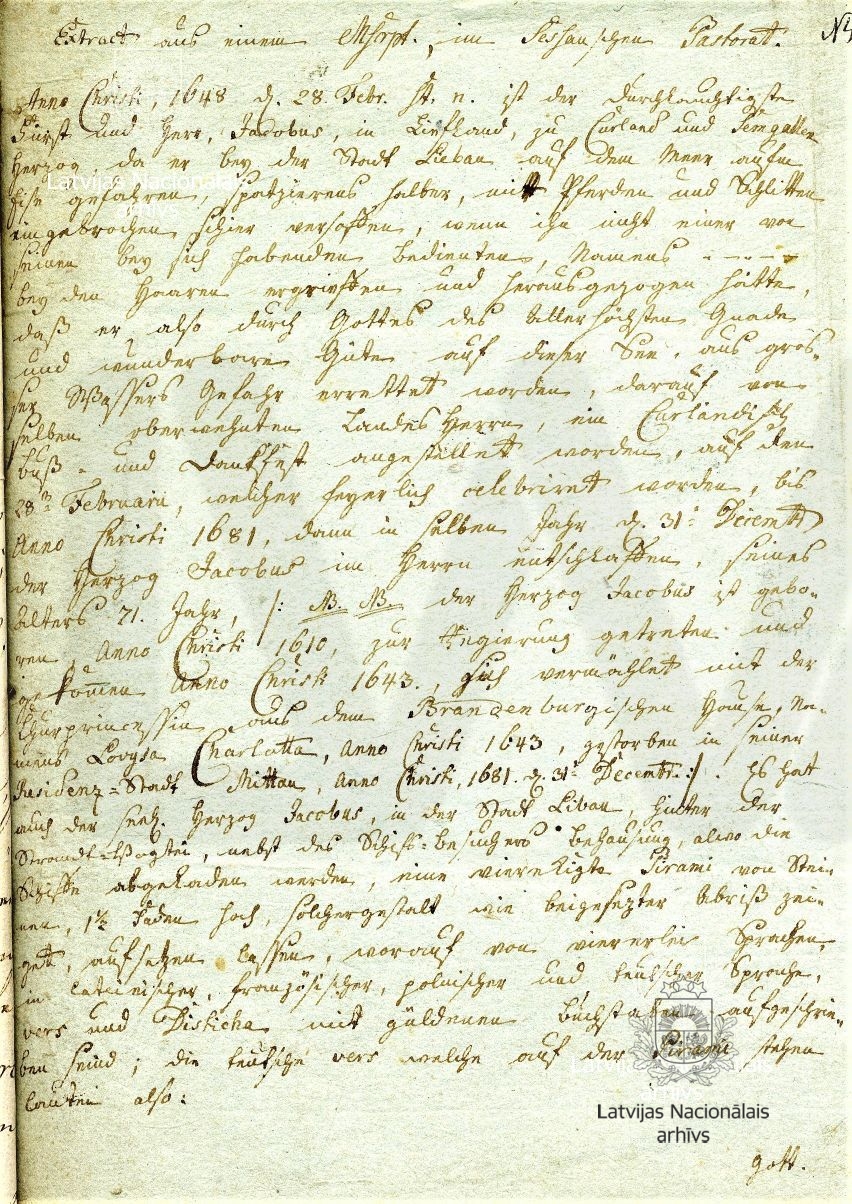 Extract aus einem Mscrpt., im Sessauschen Pastorat.
Anno Christi, 1648 d. 28. Febr. st. n. ist der Durchlauchtigste
Fürst und Herr, Jacobus, in Liefland, zu Curland und Semgallen
Herzog, da er bey der Stadt Liebau auf dem Meer aufm
Eise gefahren, spatzierens halber, mit Pferden und Schlitten
eingebrochen, schier versoffen, wenn ihn nicht einer von
seinen bey sich habenden Bedienten, Namens - - - - -
bey den Haaren ergrieffen und herausgezogen hätte,
daß er also durch Gottes des Allerhöchsten Gnade
und wunderbare Güte auf dieser See, aus gros-
ser Wassers Gefahr errettet worden, darauf von
selben oberwehnten Landes Herrn, ein Curländisch
Buß- und Dankfest angestellet worden, auf den
28ten Februarii, welcher feyerlich celebriret worden, bis
Anno Christi 1681, dann in selben Jahr d. 31. Decembr
der Herzog Jacobus im Herrn entschlaffen, seines
Alters 71. Jahr, /: NB. NB. der Herzog Jacobus ist gebo-
ren Anno Christi 1610, zur Regierung getreten und
gekommen Anno Christi 1643, sich vermählet mit der
Churprincessin aus dem Brandenburgischen Hause, Na-
mens Lovysa Charlotta, Anno Christi 1643, gestorben in seiner
Residenz-Stadt Mittau, Anno Christi, 1681. d. 31. Decembr. :/. Es hat
auch der seel. Herzog Jacobus, in der Stadt Libau, hinter der
Strandt-Vogtei, nebst des Schiff-besuchers Behausung, alwo die
Schiffe abgeladen werden, eine viereckigte Pirami von Stei-
nen, 1½ Faden hoch, solchergestalt wie beigesezter Abriß zei-
get, aufsetzen lassen, worauf von viererlei Sprachen,
in lateinischer, französischer, polnischer und teutscher Sprache,
vers und Disticha mit güldenen Buchstaben aufgeschrie-
ben seind; die teutsche vers welche auf der Pirami stehen
lauten also:
Gott.
Latvijas Nacionālais
arhīvs
Latvijas Nacionālais
arhīvs